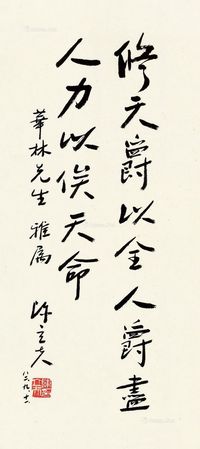 修天爵以全人爵盡
人力以俟天命
華林先生 雅属
陳立夫
八六、九、十一